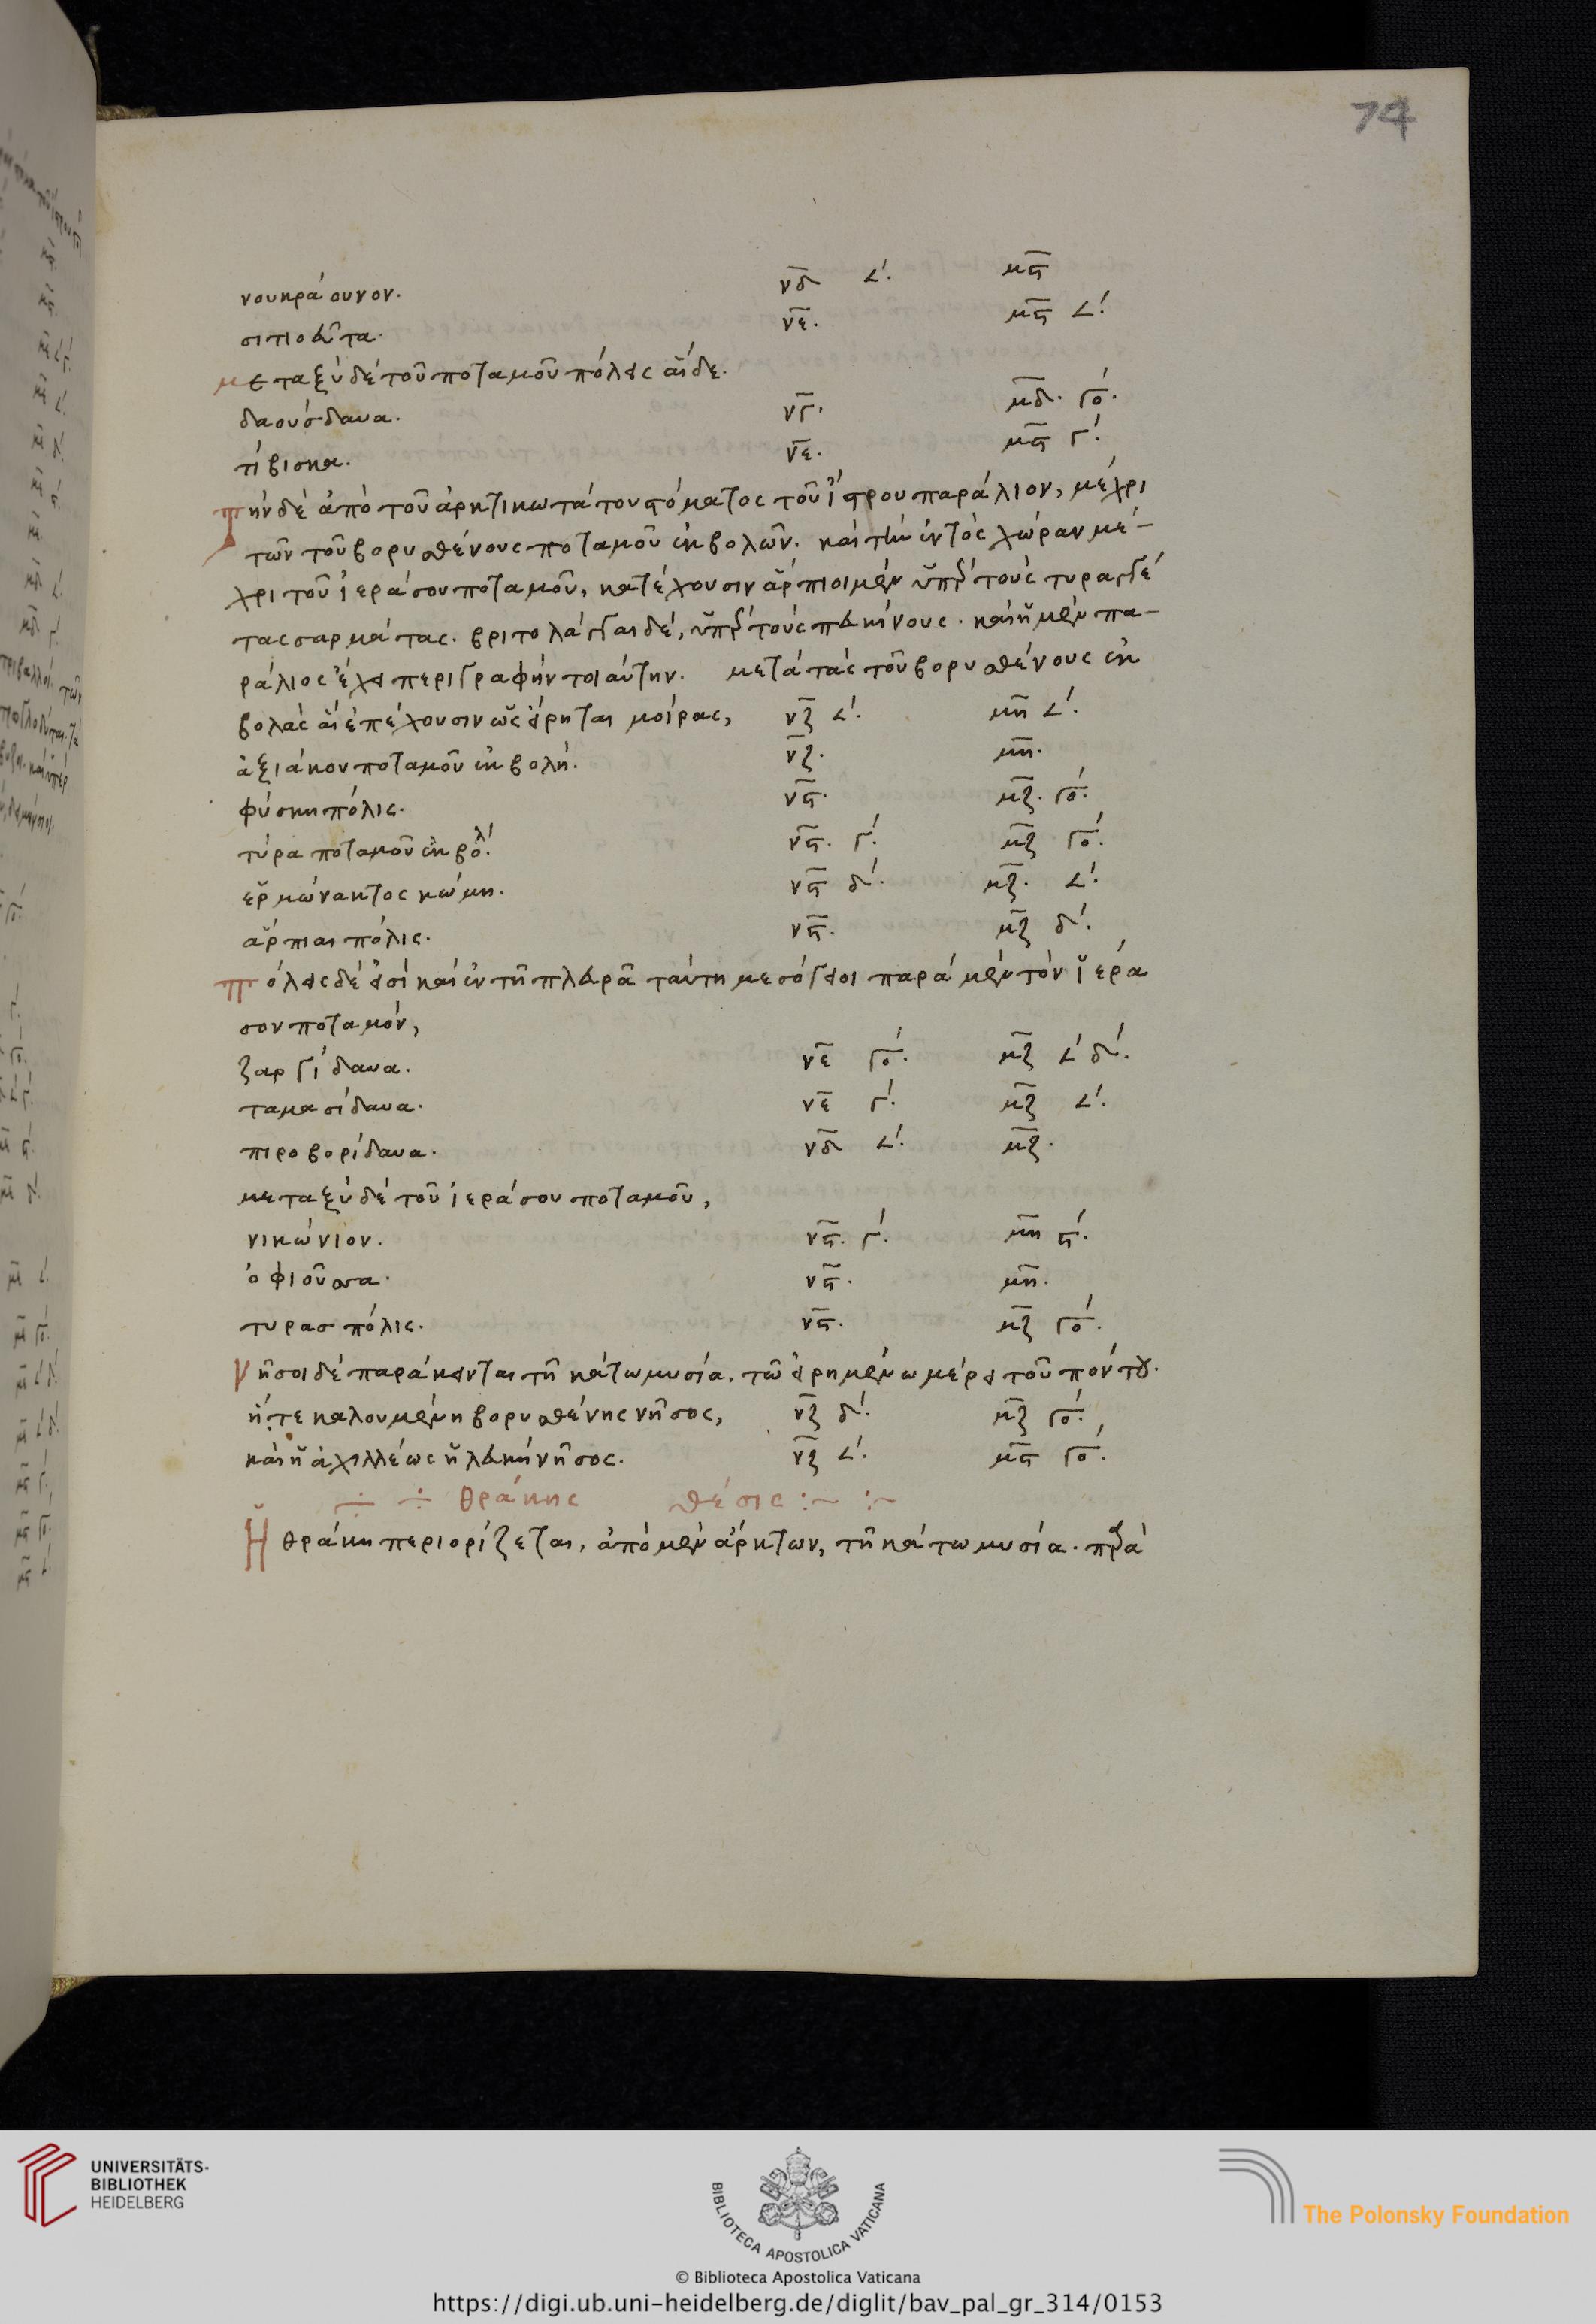 74
νουκράουνον. νδ ∠΄. μϛ
σιτιοέντα. νε. μϛ ∠΄.
μεταξὺ δὲ τοῦ ποταμοῦ πόλεις αἵδε.
δαούσδανα. νγ. μδ. γο΄.
τίβισκα. νε. μϛ γ΄.
Τὴν δὲ ἀπὸ τοῦ ἀρκτικωτάτου στόματος τοῦ ἴστρου παράλιον, μέχρι
τῶν τοῦ βορυσθένους ποταμοῦ ἐκβολῶν. καὶ τὴν ἐντὸς χώραν μέ-
χρι τοῦ ἱεράσου ποταμοῦ, κατέχουσιν ἅρπιοι μὲν ὑπὲρ τοὺς τυραγγέ
τας σαρμάτας. βριτολάγγαι δὲ, ὑπὲρ τοὺς πευκίνους. καὶ ἡ μὲν πα-
ράλιος ἔχει περιγραφὴν τοιαύτην. μετὰ τὰς τοῦ βορυσθένους ἐκ
βολὰς αἳ ἐπέχουσιν ὡς εἴρηται μοίρας, νζ ∠΄. μη ∠΄.
ἀξιάκου ποταμοῦ ἐκβολή. νζ. μη.
φύσκη πόλις. νϛ. μζ. γο΄.
τύρα ποταμοῦ ἐκβολ΄. νϛ. γ΄. μζ γο΄.
ἑρμώνακτος κώμη. νϛ δ΄. μζ. ∠΄.
ἅρπιαι πόλις. νϛ. μζ δ΄.
πόλεις δέ εἰσι καὶ ἐν τῇ πλευρᾷ ταύτη μεσόγειοι παρὰ μὲν τὸν ἱερά
σον ποταμόν,
ζαργίδανα. νε γο΄. μζ ∠΄ δ΄.
ταμασίδανα. νε γ΄. μζ ∠΄.
πιροβορίδανα. νδ ∠΄. μζ.
μεταξὺ δὲ τοῦ ἱεράσου ποταμοῦ,
νικώνιον. νϛ. γ΄. μη ϛ΄.
ὀφιοῦσσα. νϛ. μη.
τυρασ πόλις. νϛ. μζ γο΄.
Νῆσοι δὲ παράκεινται τῆ κάτω μυσία. τῶ εἰρημένω μέρει τοῦ πόντου.
ἥ τε καλουμένη βορυσθένης νῆσος, νζ δ΄. μζ γο΄.
καὶ ἡ ἀχιλλέως ἢ λευκὴ νῆσος. νζ ∠΄. μϛ γο΄.
÷ ÷ θράκης θέσις :~ :~
Ἡ θράκη περιορίζεται, ἀπὸ μὲν ἄρκτων, τῆ κάτω μυσία. παρὰ
UNIVERSITÄTS-
BIBLIOTHEK
HEIDELBERG
BIBLIOTECA APOSTOLICA VATICANA
The Polonsky Foundation
© Biblioteca Apostolica Vaticana
https://digi.ub.uni-heidelberg.de/diglit/bav_pal_gr_314/0153